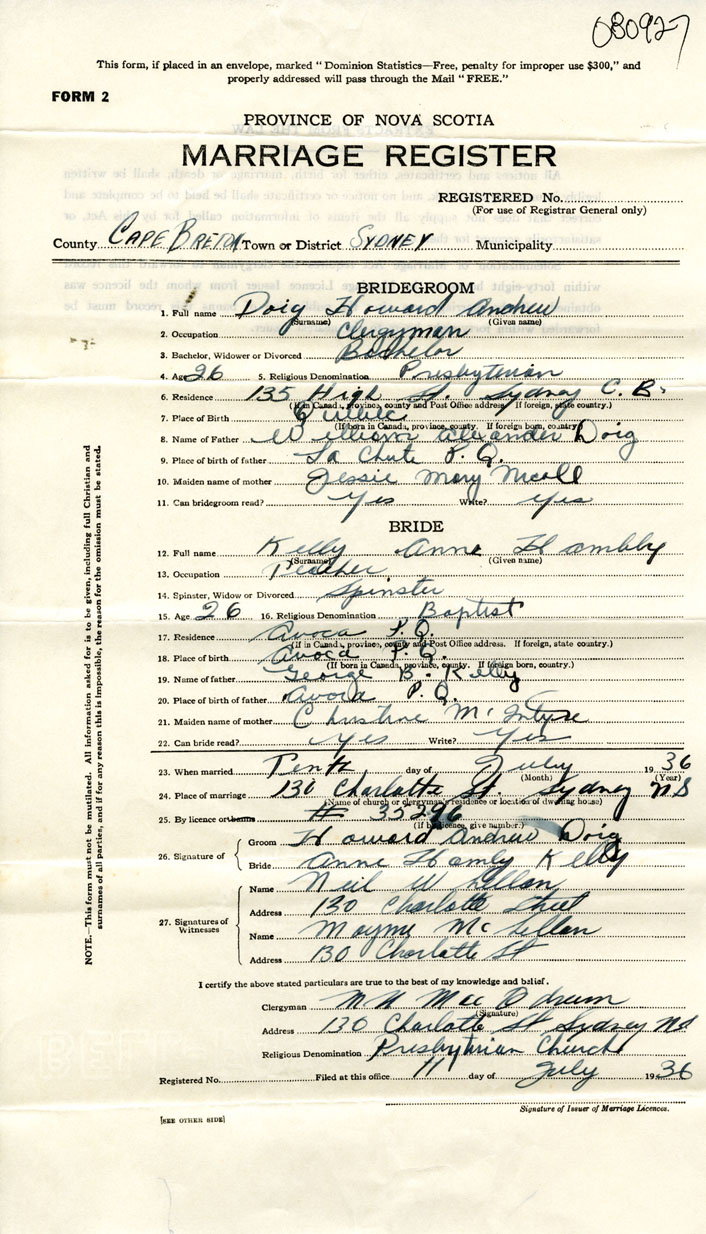 080927
This form, if placed in an envelope, marked "Dominion Statistics—Free, penalty for improper use $300," and
properly addressed will pass through the Mail "FREE."
FORM 2
PROVINCE OF NOVA SCOTIA
MARRIAGE REGISTER
REGISTERED No.
(For use of Registrar General only)
County CAPE BRETON Town or District SYDNEY Municipality
BRIDEGROOM
1. Full name Doig Howard Andrew
(Surname) (Given name)
2. Occupation Clergyman
3. Bachelor, Widower or Divorced Bachelor
4. Age 26 5. Religious Denomination Presbyterian
6. Residence 135 High St. Sydney C. B.
(If in Canada, province, county and Post Office address. If foreign, state country.)
7. Place of Birth
(If born in Canada, province, county. If foreign born, country)
8. Name of Father William Alexander Doig
9. Place of birth of father La Chute P. Q.
10. Maiden name of mother Jessie Mary Nicoll
11. Can bridegroom read? Yes Write? Yes
BRIDE
12. Full name Kelly Anne Hambly
(Surname) (Given name)
13. Occupation Teacher
14. Spinster, Widow or Divorced Spinster
15. Age 26 16. Religious Denomination Baptist
17. Residence Avoca P. Q.
(If in Canada, province, county and Post Office address. If foreign, state country.)
18. Place of birth Avoca P. Q.
(If born in Canada, province, county. If foreign born, country.)
19. Name of father George B. Kelly
20. Place of birth of father Avoca P. Q.
21. Maiden name of mother Christine McIntyre
22. Can bride read? Yes Write? Yes
23. When married Tenth day of July 1936
(Month) (Year)
24. Place of marriage 130 Charlotte St. Sydney N S
(Name of church or clergyman's residence or location of dwelling house)
25. By licence or banns # 35296
(If by licence, give number.)
26. Signature of Groom Howard Andrew Doig
Bride Anne Hamly Kelly
27. Signatures of Witnesses
Name Neil W
Address 130 Charlotte Street
Name Mayme McLellan
Address 130 Charlotte St
I certify the above stated particulars are true to the best of my knowledge and belief.
Clergyman Mac Odrum
(Signature)
Address 130 Charlotte St Sydney
Religious Denomination Presbyterian Church
Registered No. Filed at this office 11 day of July 1936
Signature of Issuer of Marriage Licences.
[SEE OTHER SIDE]
NOTE.—This form must not be mutilated. All information asked for is to be given, including full Christian and
surnames of all parties, and if for any reason this is impossible, the reason for the omission must be stated.